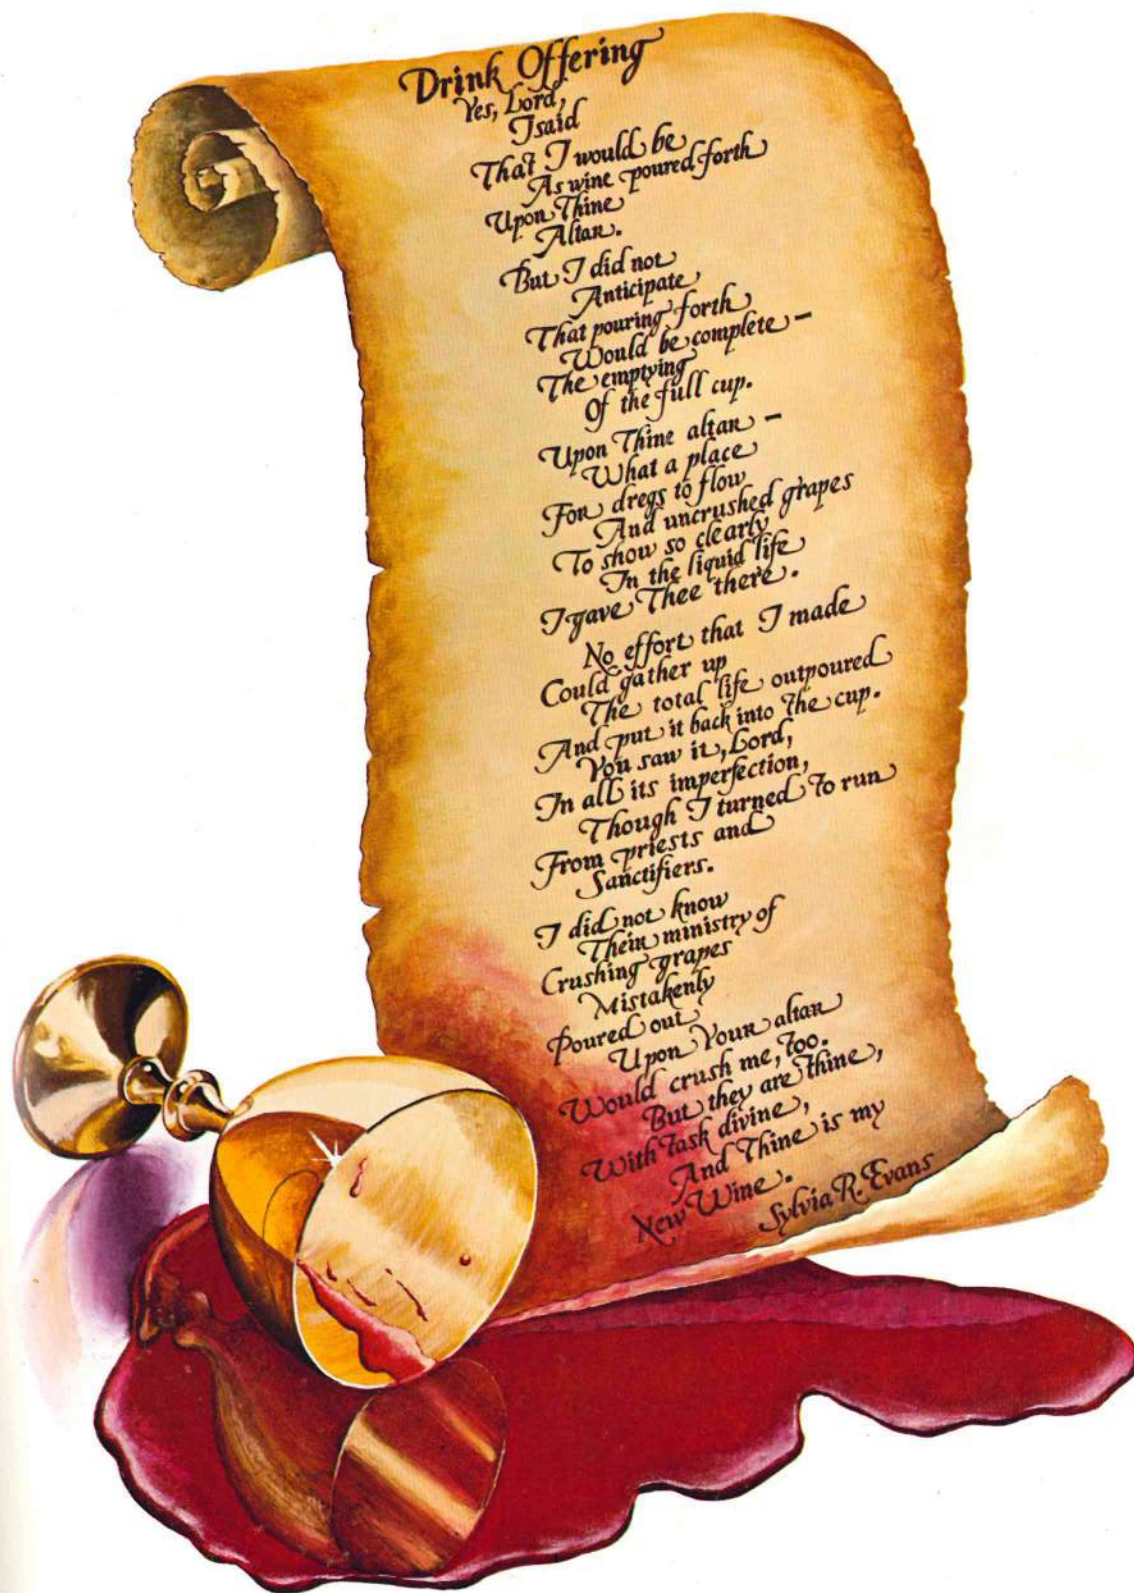 Drink Offering
Yes, Lord,
I said
That I would be
As wine poured forth
Upon Thine
Altar.
But I did not
Anticipate
That pouring forth
Would be complete –
The emptying
Of the full cup.
Upon Thine altar –
What a place
For dregs to flow
And uncrushed grapes
To show so clearly
In the liquid life
I gave Thee there.
No effort that I made
Could gather up
The total life outpoured
And put it back into the cup.
You saw it, Lord,
In all its imperfection,
Though I turned to run
From priests and
Sanctifiers.
I did not know
Their ministry of
Crushing grapes
Mistakenly
Poured out
Upon Your altar
Would crush me, too.
But they are Thine,
With task divine,
And Thine is my
New Wine.
Sylvia R. Evans